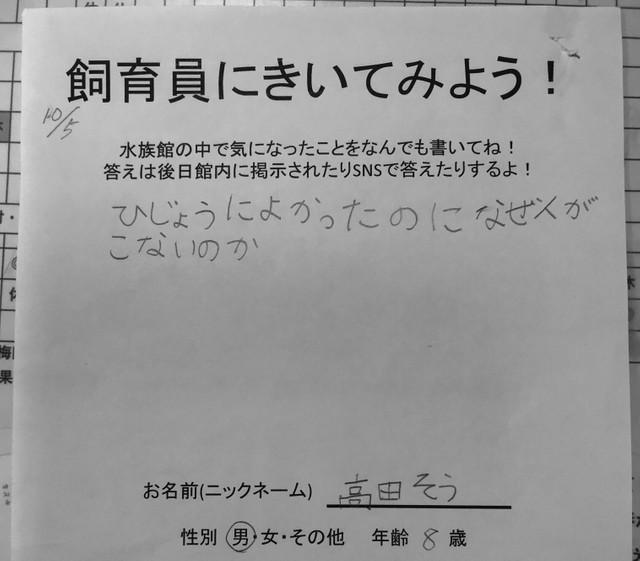 飼育員にきいてみよう！
10/5
水族館の中で気になったことをなんでも書いてね！
答えは後日館内に掲示されたりSNSで答えたりするよ！
ひじょうによかったのになぜ人が
こないのか
お名前(ニックネーム) 高田そう
性別 男・女・その他 年齢 8 歳